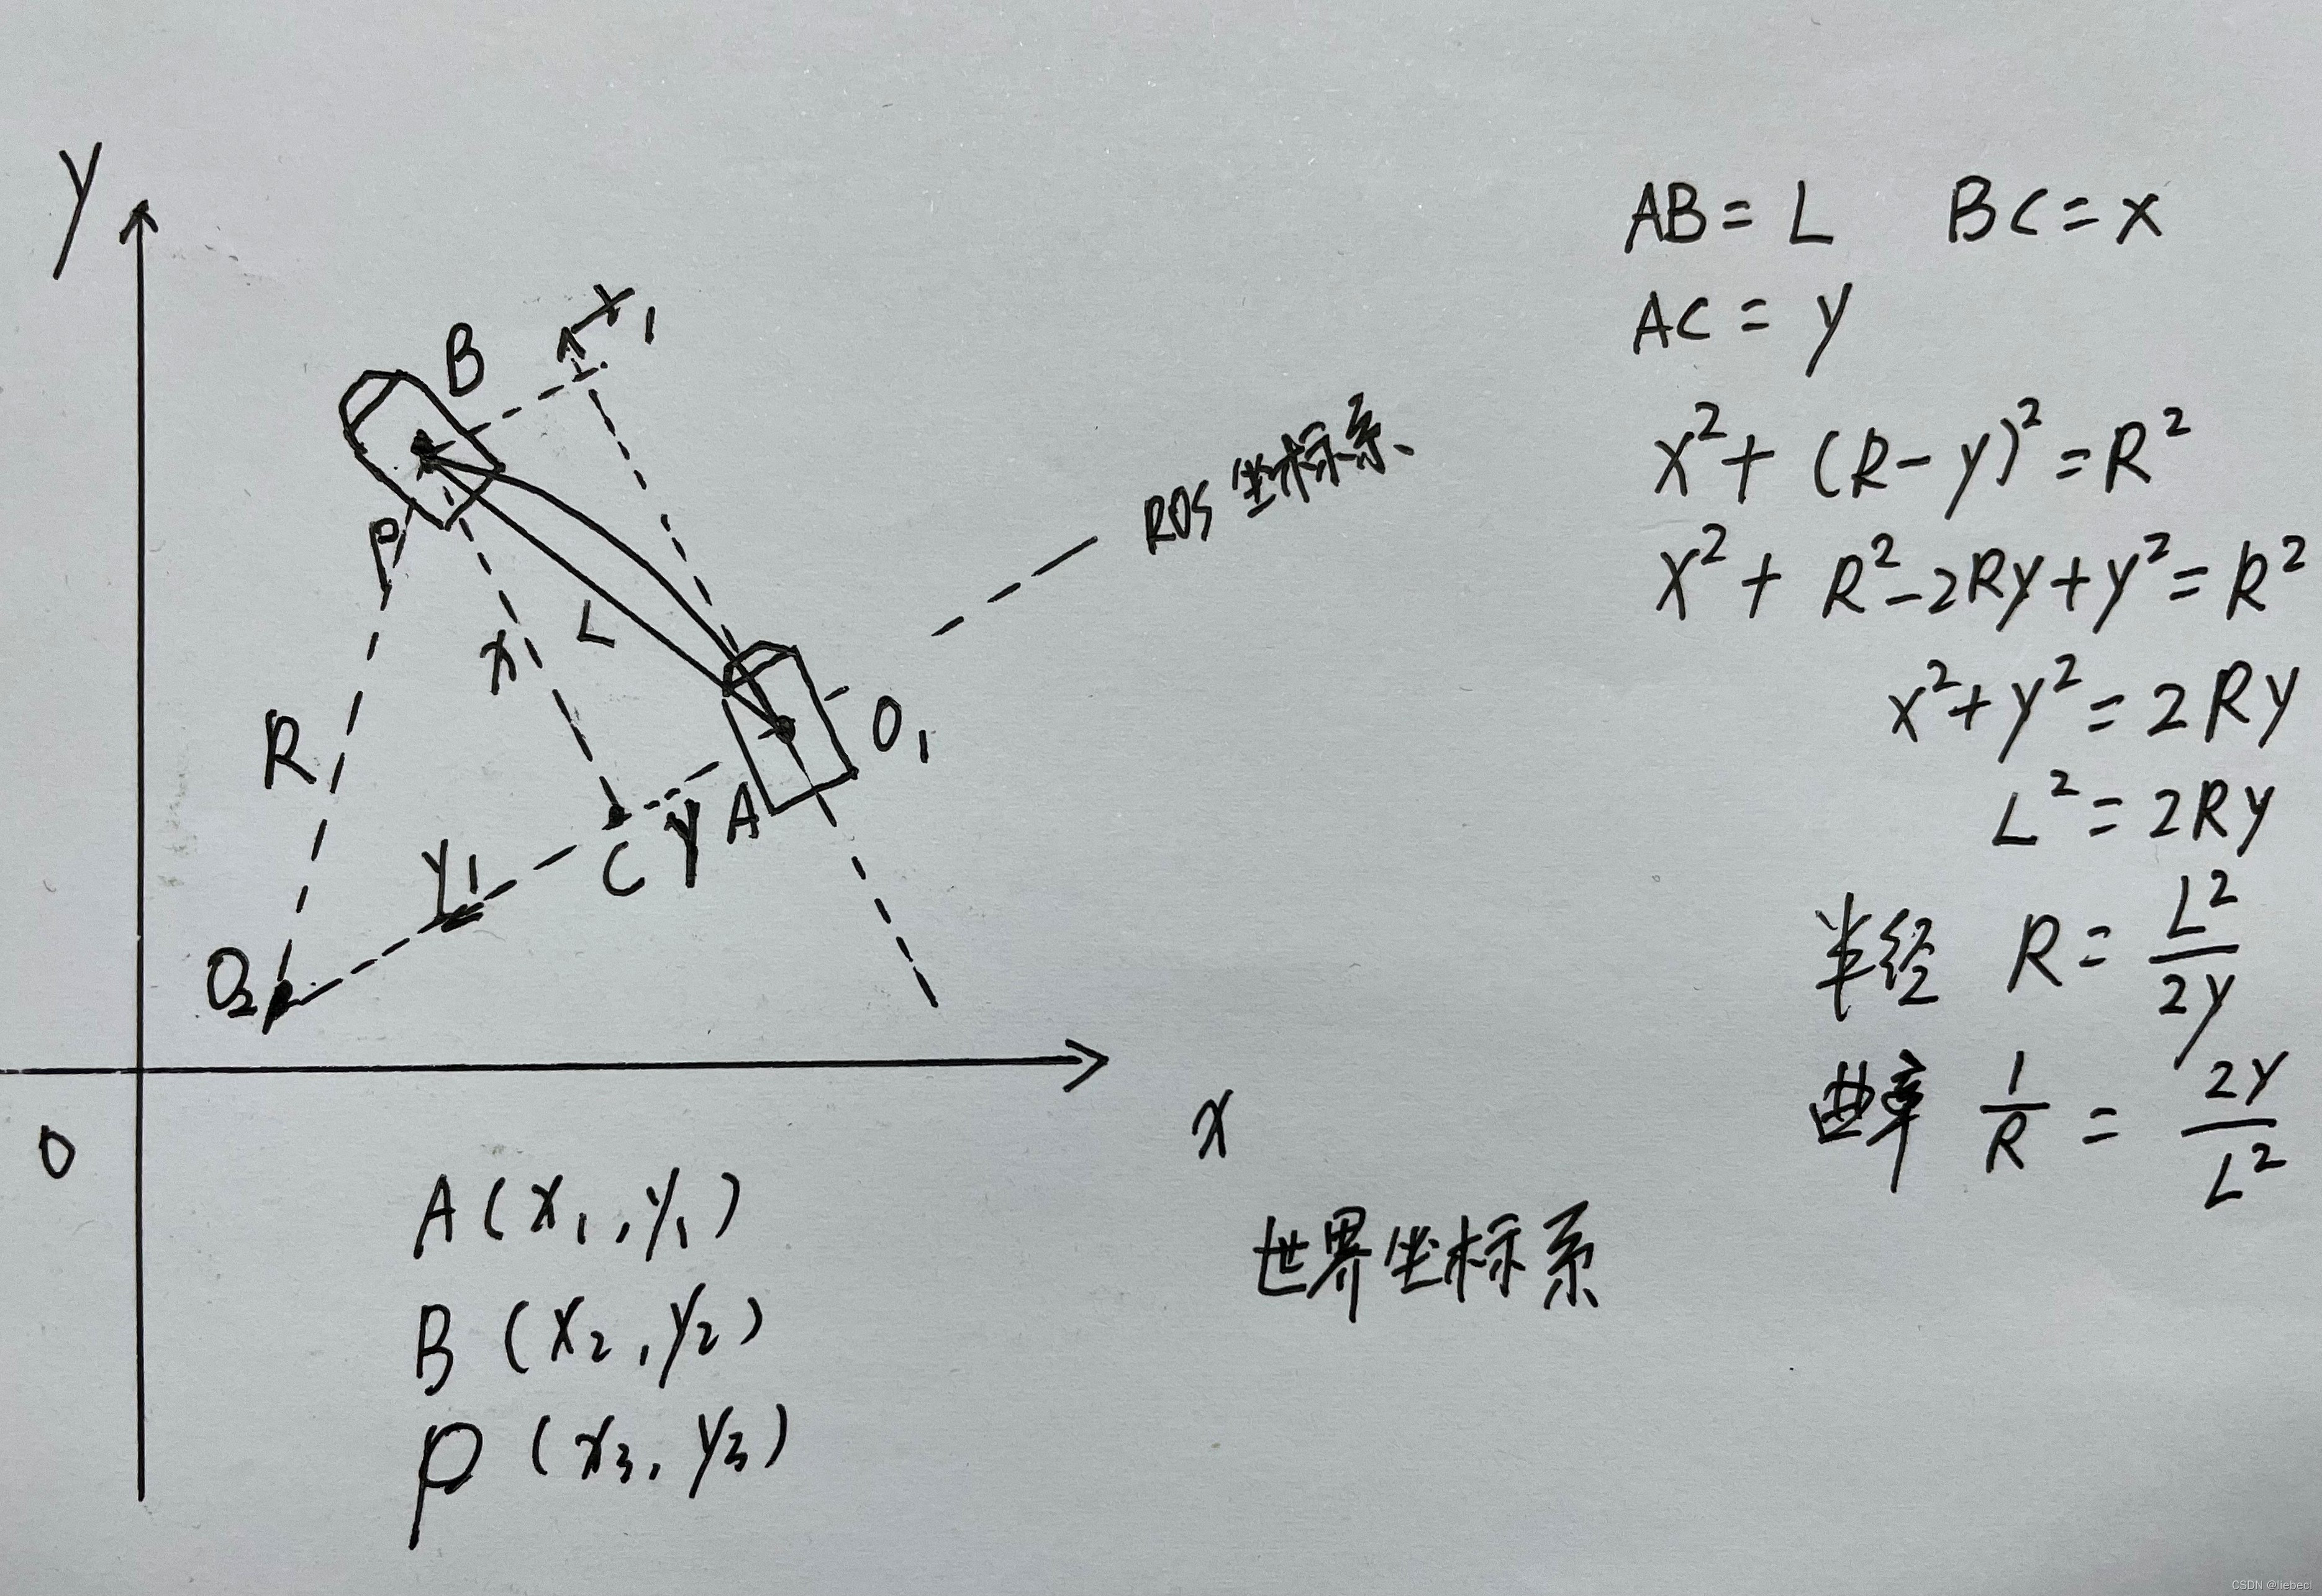 y
B
X₁
ROS 坐标系
P
L
x
R
O₁
A
y
C
Y₁
O₂
x
O
世界坐标系
A(x₁,y₁)
B(x₂,y₂)
P(x₃,y₃)
AB=L BC=x
AC=y
x²+(R-y)²=R²
x²+R²-2Ry+y²=R²
x²+y²=2Ry
L²=2Ry
半径 R=L²/2y
曲率 1/R=2y/L²
CSDN @liebect